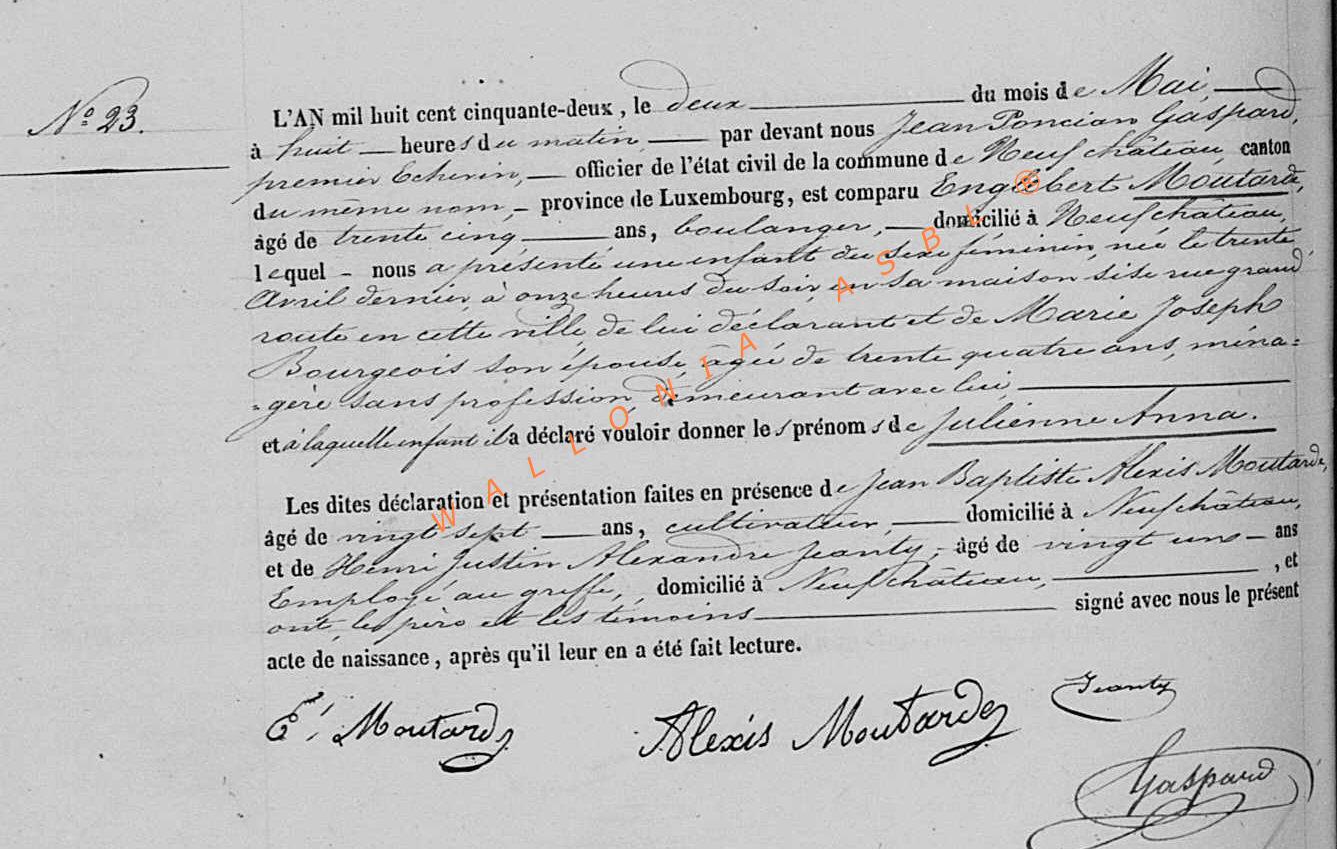 N° 23.
L'AN mil huit cent cinquante-deux, le deux du mois de Mai,
à huit heures du matin par devant nous Jean Poncian Gaspard,
premier Echevin, officier de l'état civil de la commune de Neufchâteau, canton
du même nom, province de Luxembourg, est comparu Englebert Moutarde,
âgé de trente cinq ans, boulanger, domicilié à Neufchâteau,
lequel nous a présenté une enfant du sexe féminin, née le trente
Avril dernier, à onze heures du soir, en sa maison sise rue grand
route en cette ville, de lui déclarant et de Marie Joseph
Bourgeois son épouse, agée de trente quatre ans, ména=
=gère sans profession, demeurant avec lui,
et à laquelle enfant il a déclaré vouloir donner les prénoms de Julienne Anna.
Les dites déclaration et présentation faites en présence de Jean Baptiste Alexis Moutarde,
âgé de vingt sept ans, cultivateur, domicilié à Neufchâteau,
et de Henri Justin Alexandre Jeanty, âgé de vingt un ans
Employé au greffe, domicilié à Neufchâteau, , et
ont, les père et les témoins signé avec nous le présent
acte de naissance, après qu'il leur en a été fait lecture.
E. Moutarde
Alexis Moutarde
Jeanty
Gaspard
WALLONIA ASBL ®